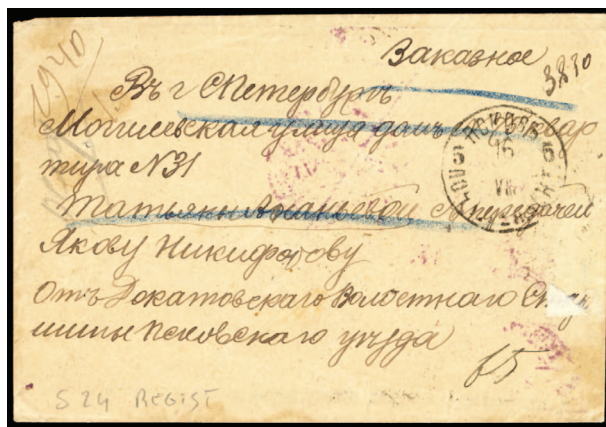 Заказное
3830
1940
Въ г СПетербургъ
Могилевская улица домъ квар
тира N31
Татьяны Ананьевой с передачей
Якову Никифорову
Отъ Докатовскаго Волостнаго Стар
шины Псковскаго уезда
65
S 24 REGIST